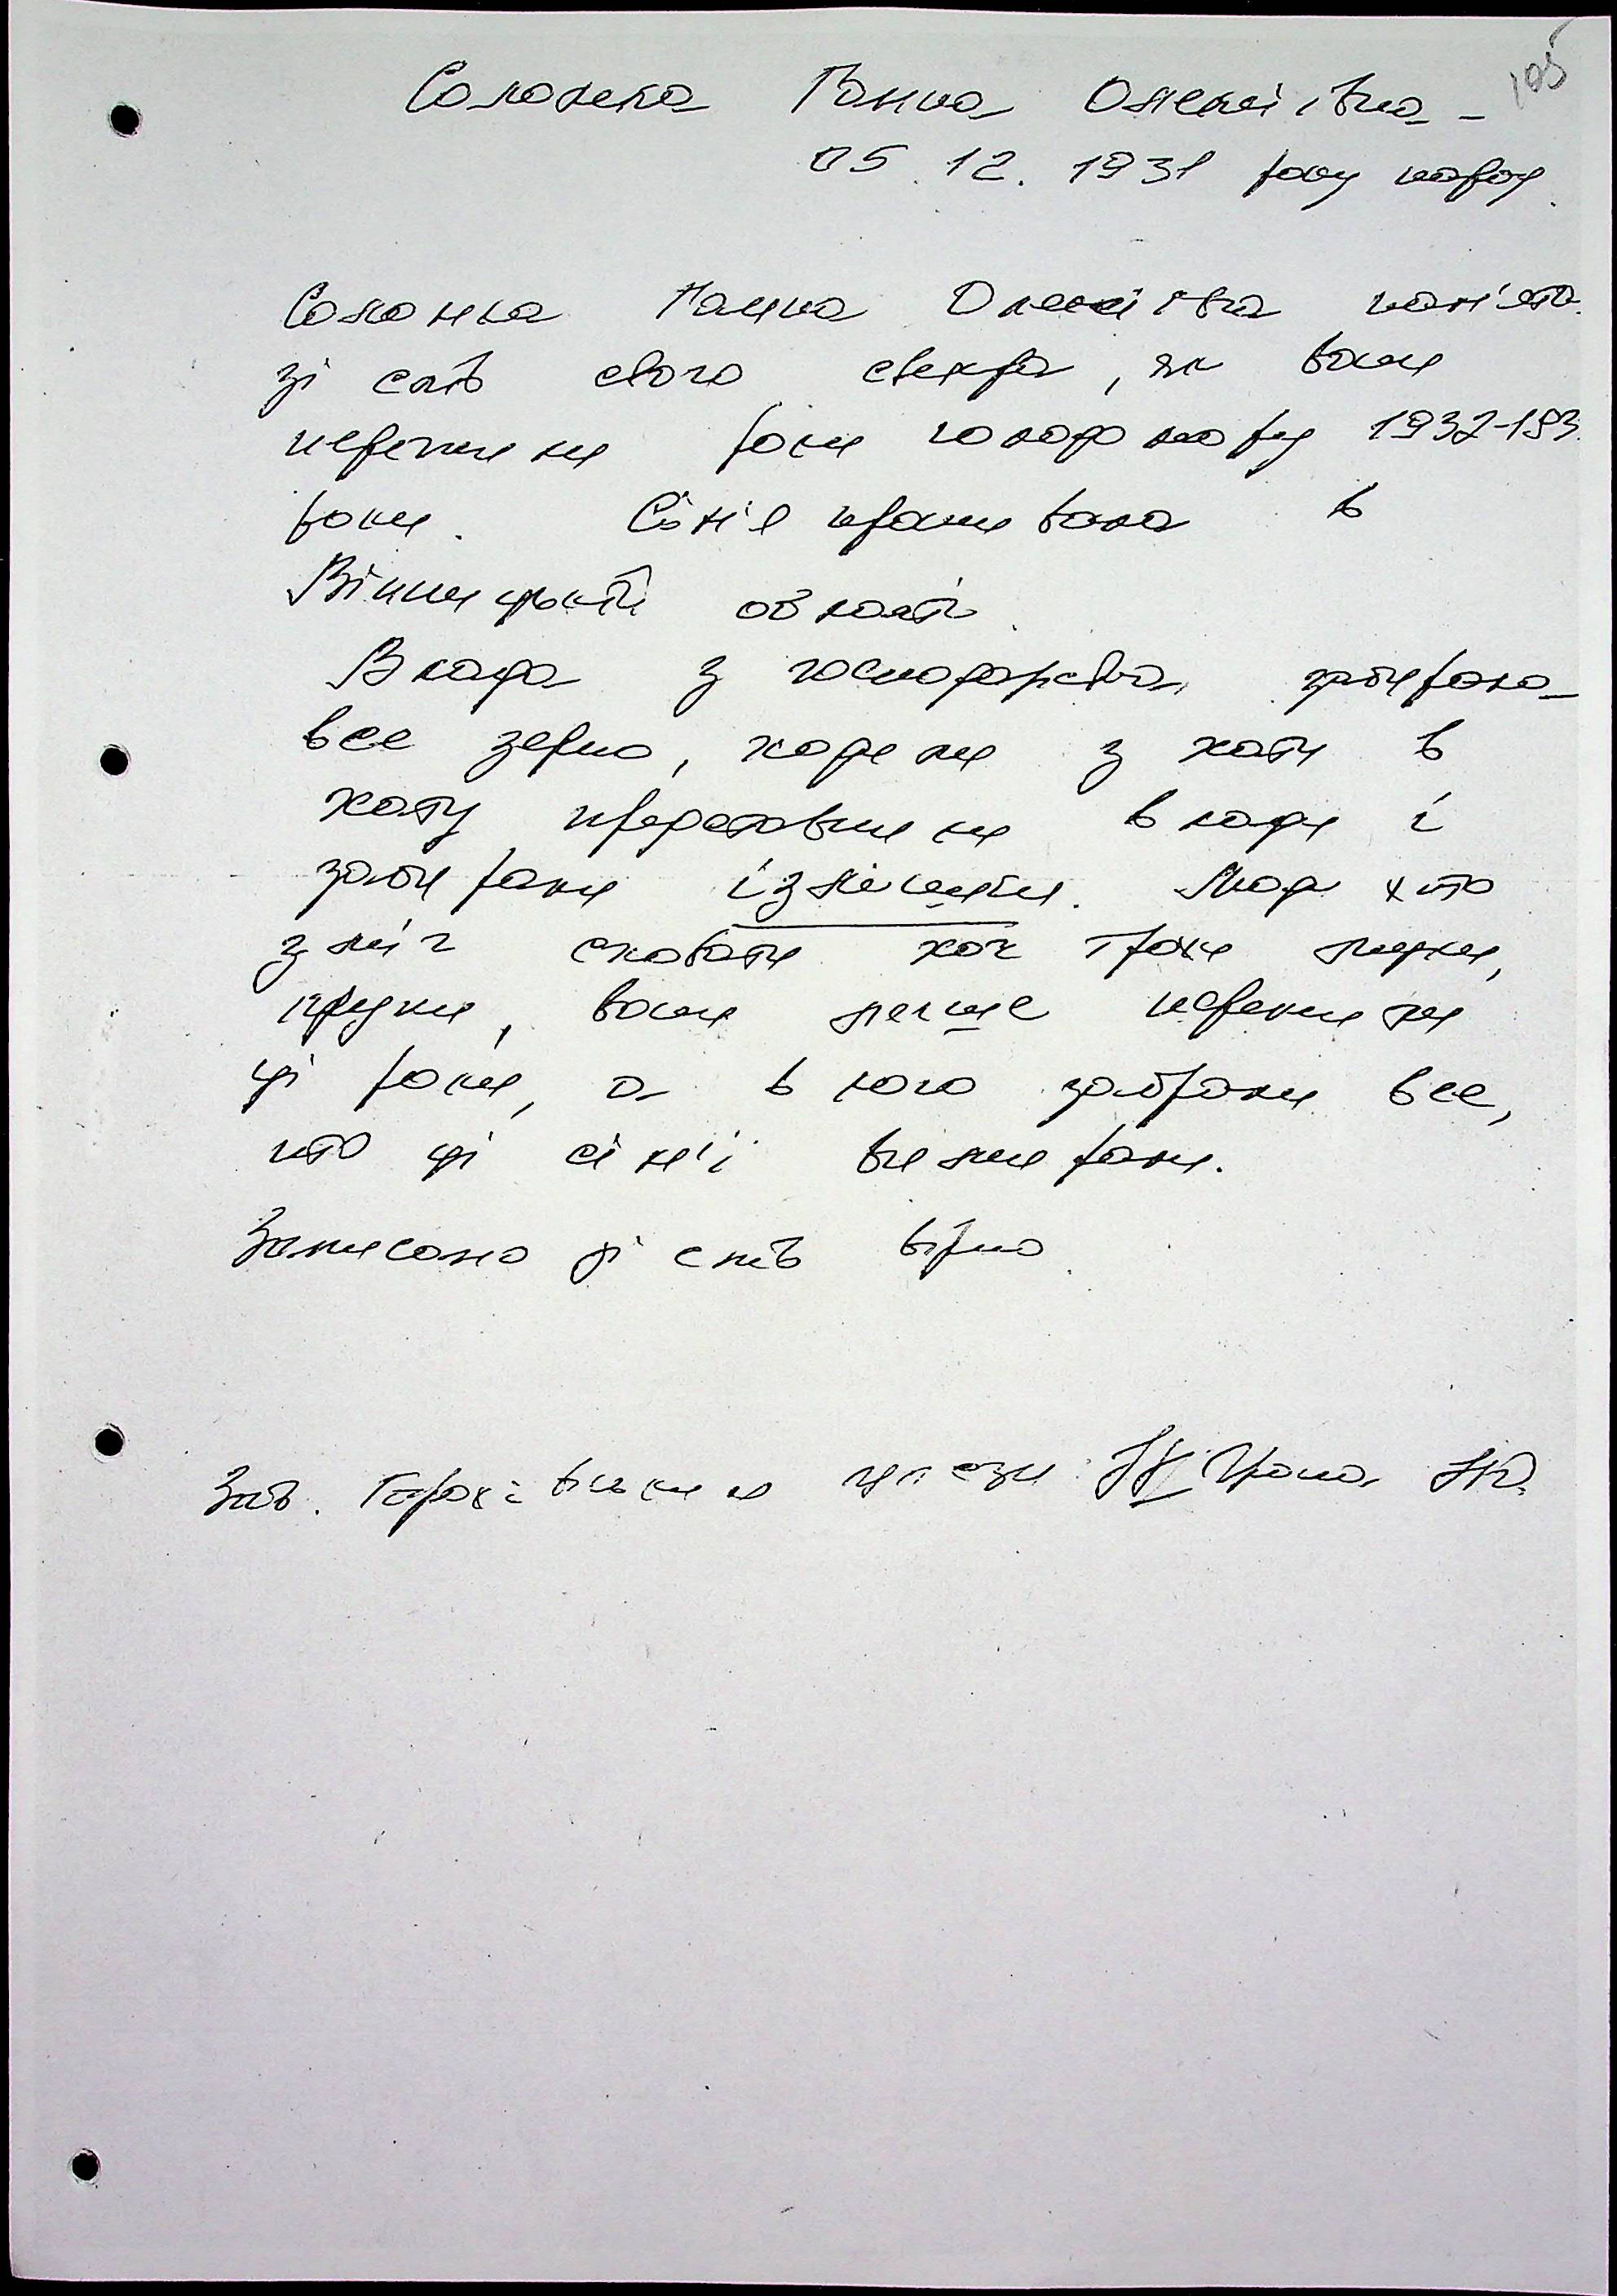 105
Солонька Ганна Олексіївна -
05.12.1931 року народ.
Солонька Ганна Олексіївна пам'ята
зі слів свого свекра, як вони
пережили роки голодомору 1932-193
роки. Сім'я проживала в
Вінницькій області.
Влада з господарства забирала
все зерно, ходили з хати в
хату представники влади і
забирали ізлишки. Люди хто
зміг сховати хоч трохи муки,
крупи, вони легше пережили
ці роки, а в кого забрали все,
то ці сім'ї вимирали.
Записано зі слів вірно.
Зав. бібліотекою